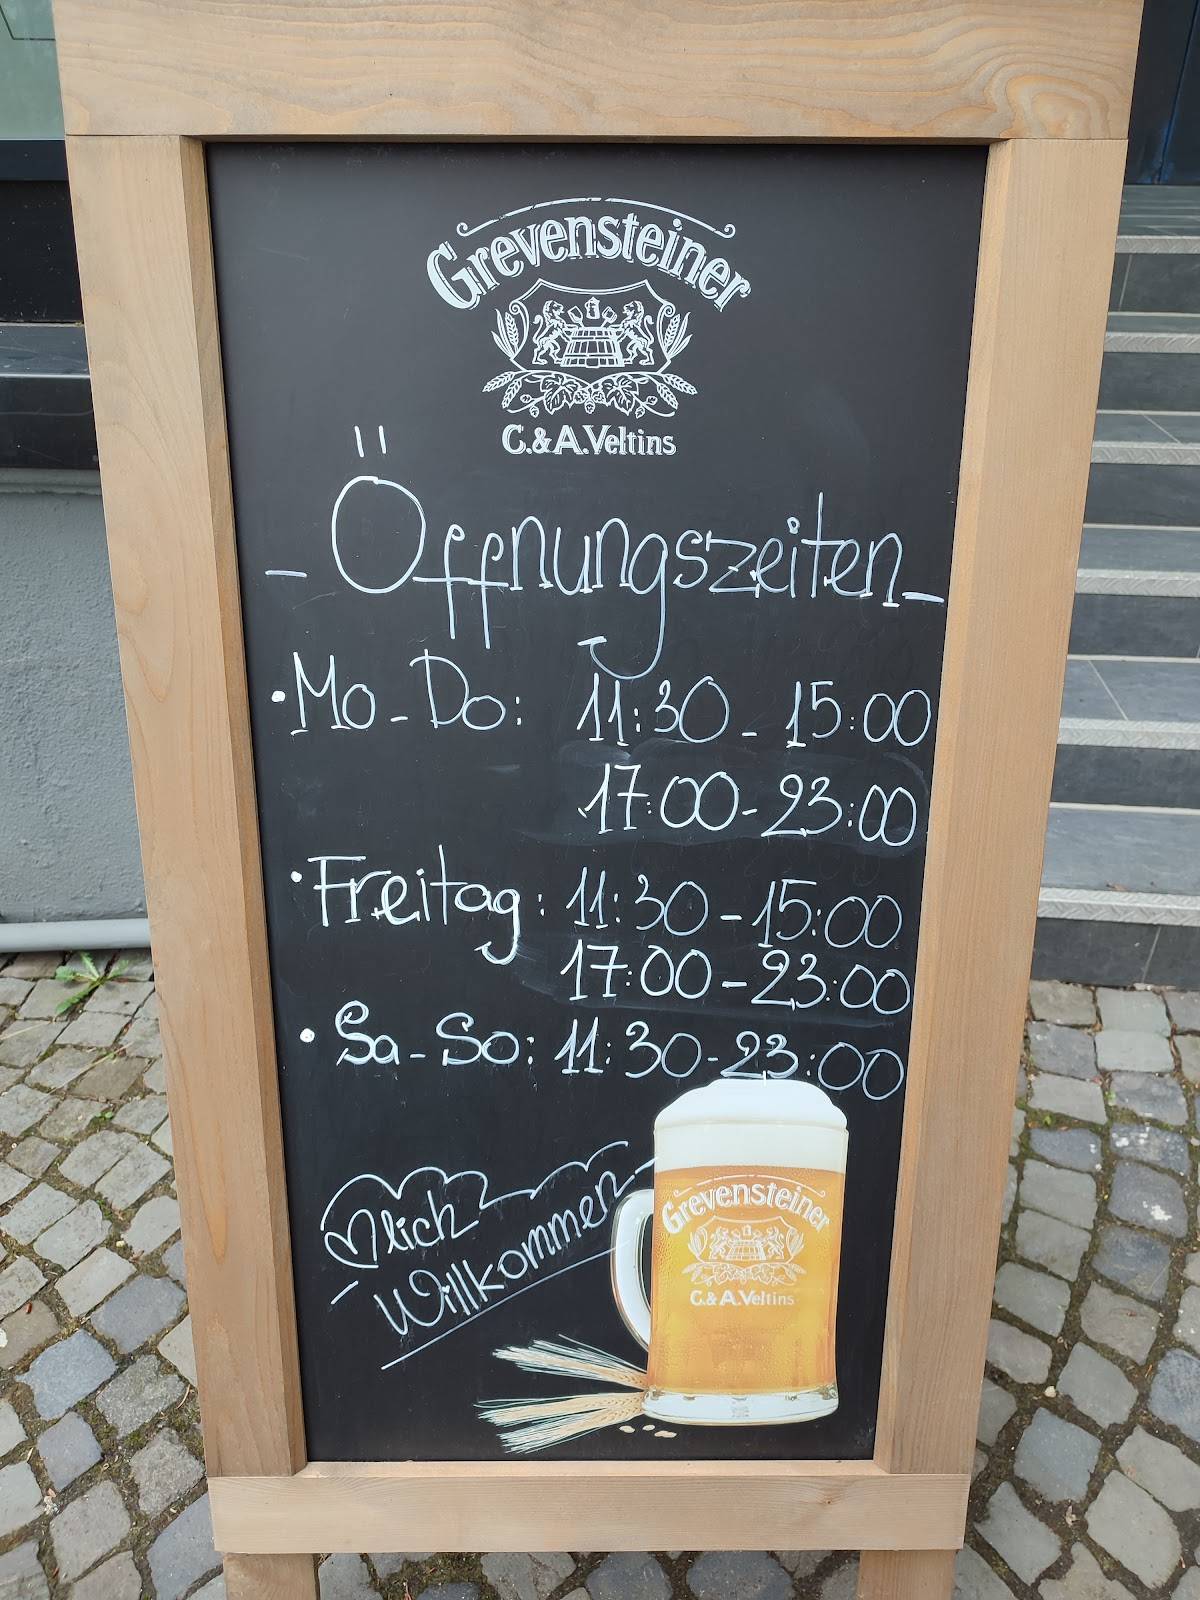 Grevensteiner
C.&A.Veltins
- Öffnungszeiten -
·Mo - Do: 11:30 - 15:00
17:00 - 23:00
·Freitag: 11:30 - 15:00
17:00 - 23:00
· Sa - So: 11:30 - 23:00
♡lich
Willkommen
Grevensteiner
C.&A.Veltins